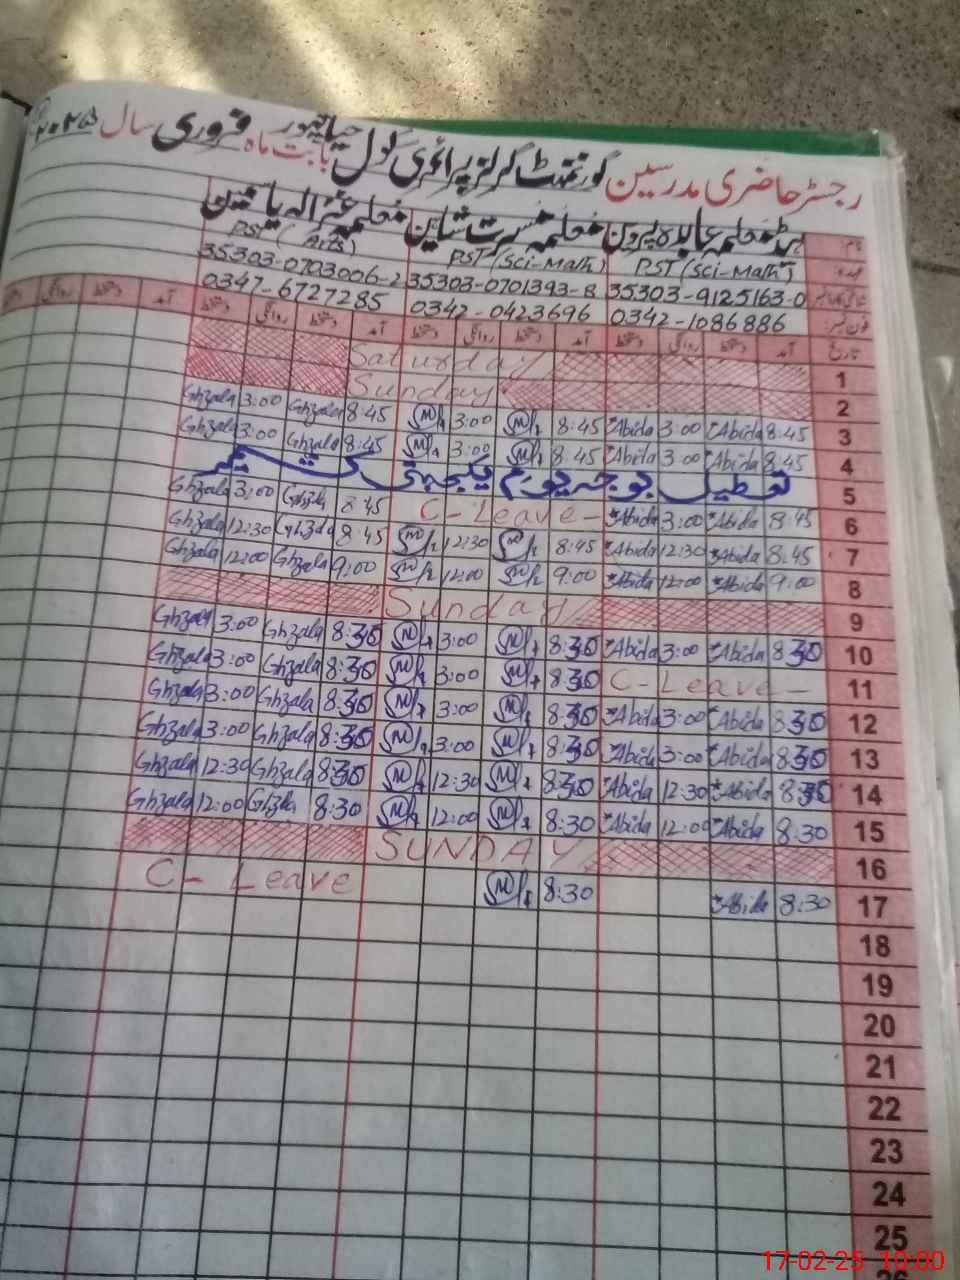 رجسٹر حاضری مدرسین گورنمنٹ گرلز پرائمری سکول بابت ماہ فروری سال ۲۰۲۵
نام ہیڈ معلمہ عابدہ پروین معلمہ مسرت شاہین معلمہ غزالہ یاسمین
عہدہ PST (Sci-Math) PST (Sci-Math) PST (Arts)
35303-9125163-0 35303-0701393-8 35303-0703006-2
فون نمبر 0342-1086886 0342-0423696 0347-6727285
تاریخ آمد دستخط روانگی دستخط آمد دستخط روانگی دستخط آمد دستخط روانگی دستخط آمد دستخط روانگی دستخط
1 Saturday
2 Sunday
3 8:45 Abida 3:00 Abida 8:45 3:00 8:45 Ghzala 3:00 Ghzala
4 8:45 Abida 3:00 Abida 8:45 3:00 8:45 Ghzala 3:00 Ghzala
5 تعطیل بوجہ یوم یکجہتی کشمیر
6 8:45 Abida 3:00 Abida C-Leave- 8:45 Ghzala 3:00 Ghzala
7 8:45 Abida 12:30 Abida 8:45 12:30 8:45 Ghzala 12:30 Ghzala
8 9:00 Abida 12:00 Abida 9:00 12:00 9:00 Ghzala 12:00 Ghzala
9 Sunday
10 8:30 Abida 3:00 Abida 8:30 3:00 8:30 Ghzala 3:00 Ghzala
11 C-Leave- 8:30 3:00 8:30 Ghzala 3:00 Ghzala
12 8:30 Abida 3:00 Abida 8:30 3:00 8:30 Ghzala 3:00 Ghzala
13 8:30 Abida 3:00 Abida 8:30 3:00 8:30 Ghzala 3:00 Ghzala
14 8:30 Abida 12:30 Abida 8:30 12:30 8:30 Ghzala 12:30 Ghzala
15 8:30 Abida 12:00 Abida 8:30 12:00 8:30 Ghzala 12:00 Ghzala
16 SUNDAY
17 8:30 Abida 8:30 C-Leave
18
19
20
21
22
23
24
25
17-02-25 10:00